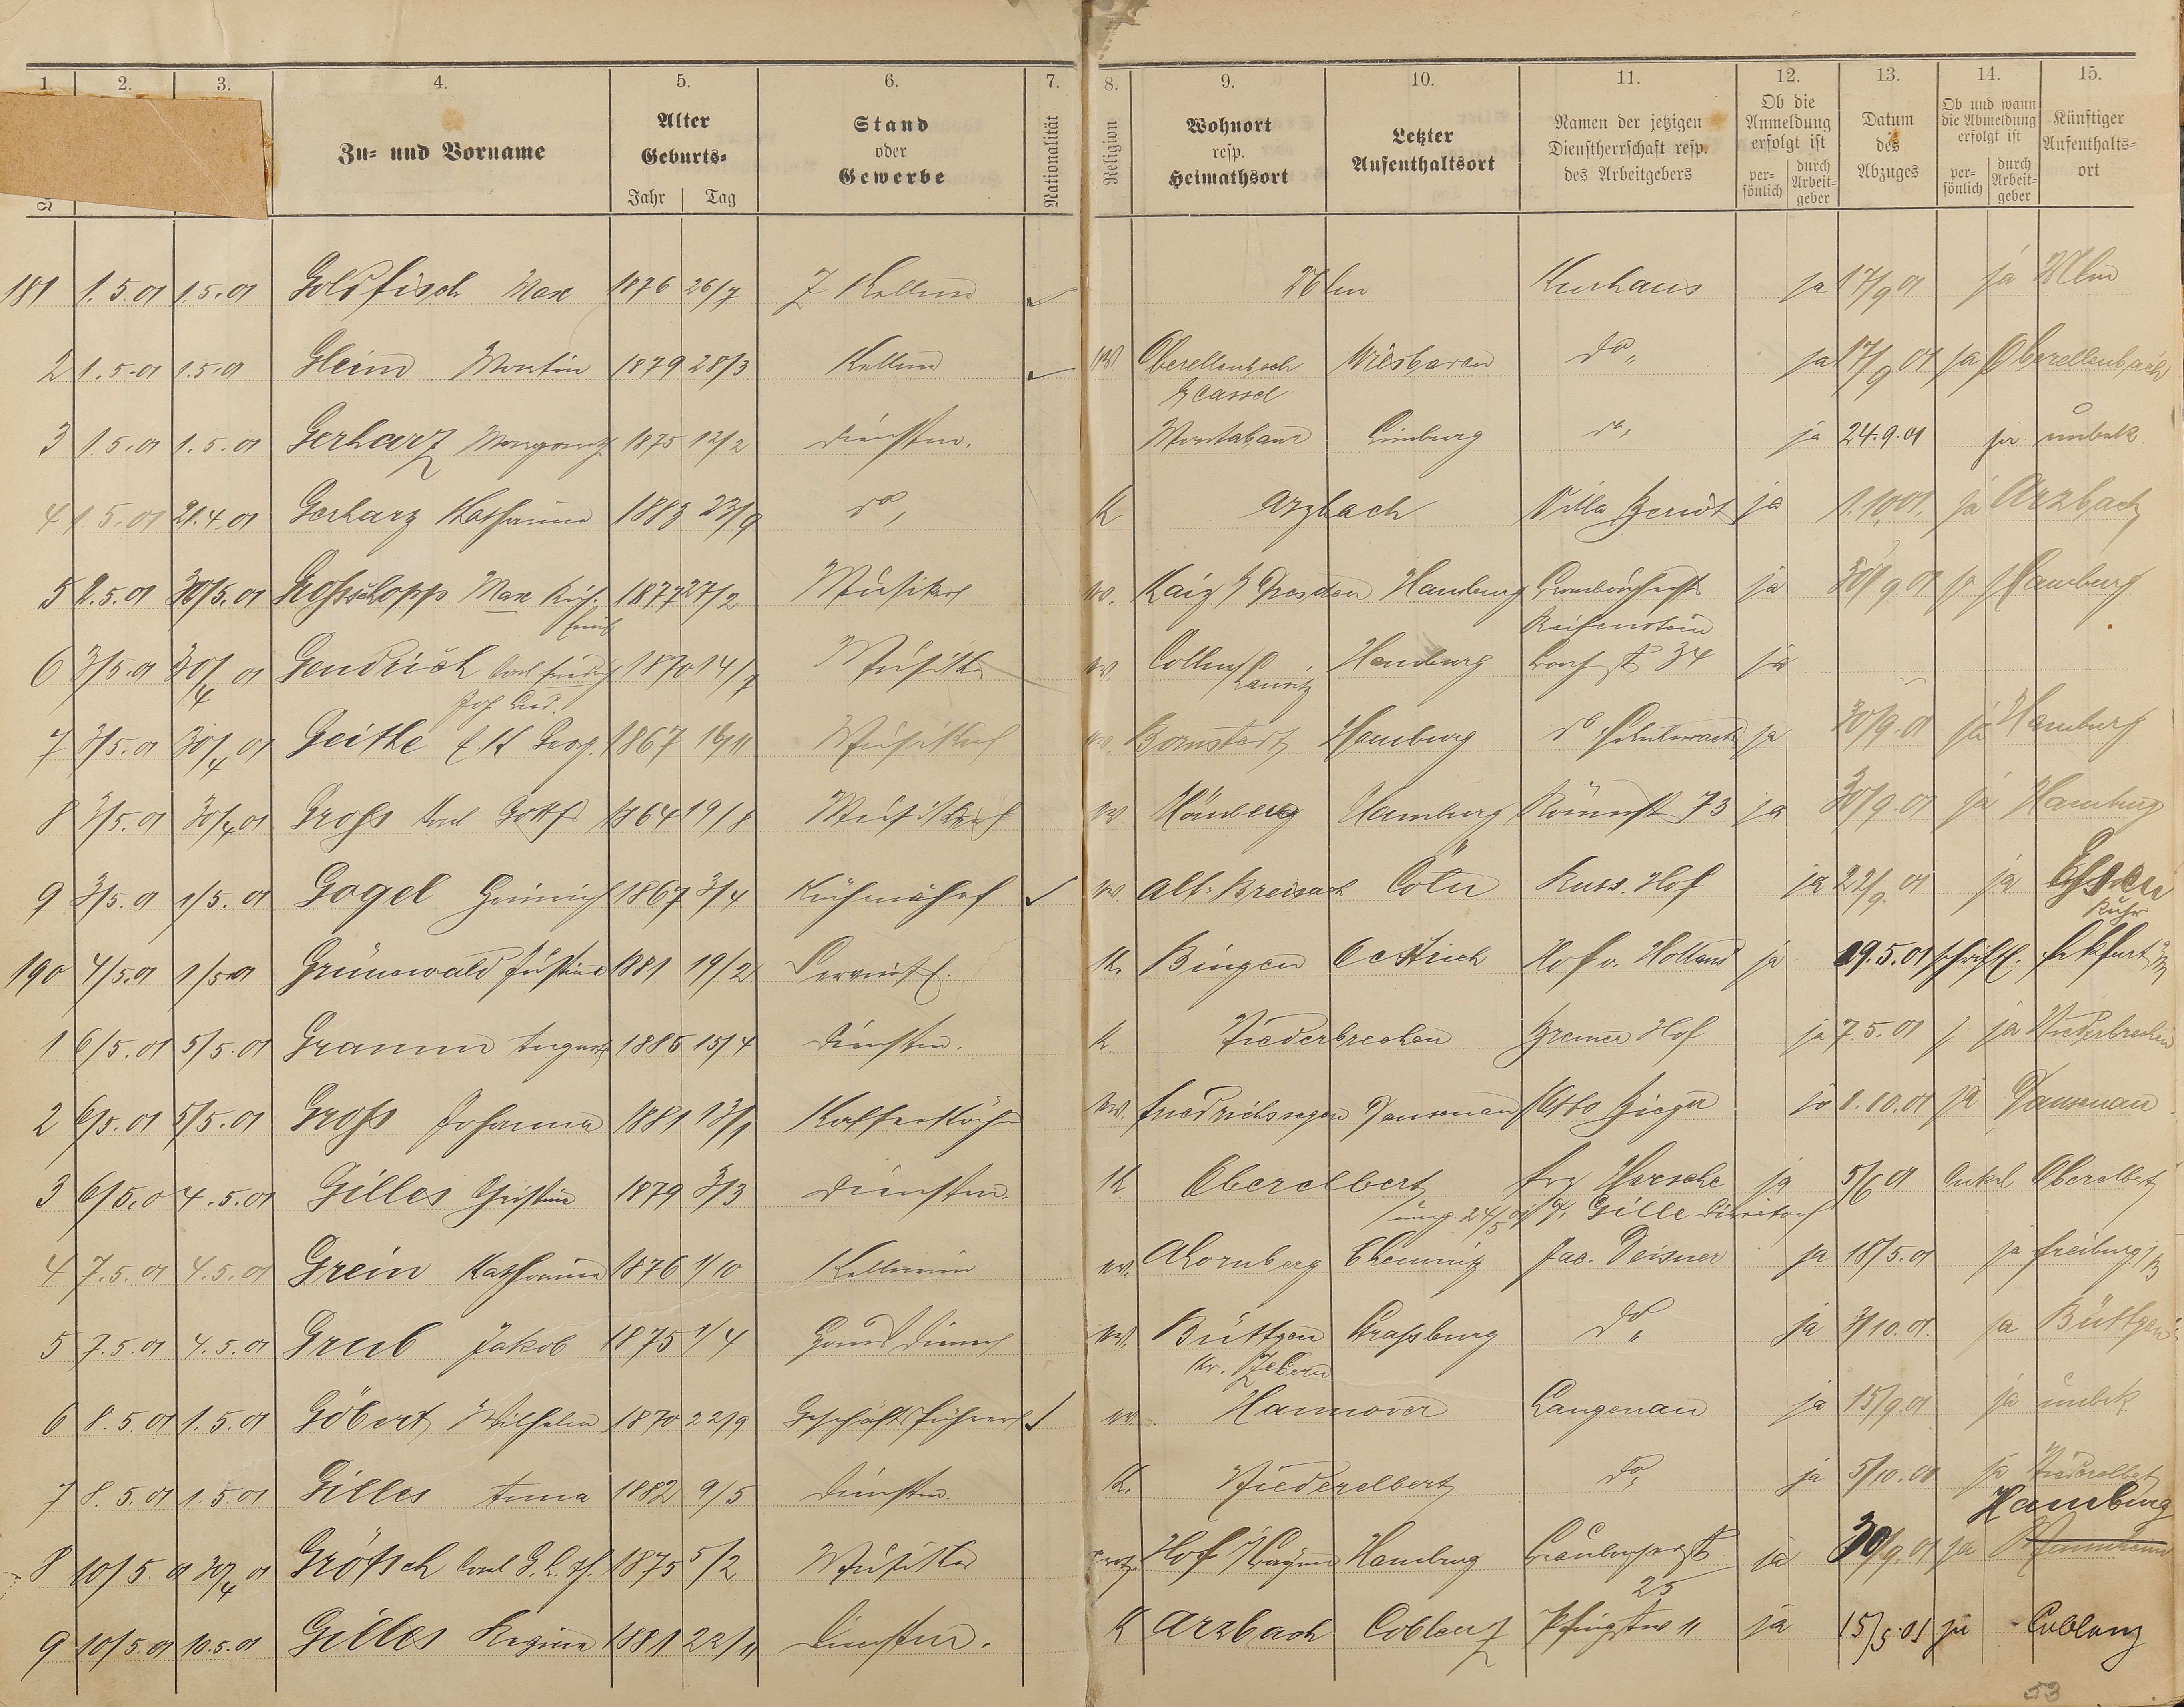 1. 2. 3. 4. 5. 6. 7. 8. 9. 10. 11. 12. 13. 14. 15.
Zu- und Vorname
Alter Geburts- Jahr Tag
Stand oder Gewerbe
Nationalität
Religion
Wohnort resp. Heimathsort
Letzter Aufenthaltsort
Namen der jetzigen Dienstherrschaft resp. des Arbeitgebers
Ob die Anmeldung erfolgt ist per- sönlich durch Arbeit- geber
Datum des Abzuges
Ob und wann die Abmeldung erfolgt ist per- sönlich durch Arbeit- geber
Künftiger Aufenthalts- ort
181 1.5.01 1.5.01 Goldfisch Max 1876 26/7 Kellner Ulm Kurhaus ja 17/9 01 ja Ulm
2 1.5.01 1.5.01 Gleim Martin 1879 28/3 Kellner Oberellenbach Wiesbaden do ja 17/9 01 ja Oberellenbach
Cassel
3 1.5.01 1.5.01 Gerharz 1875 12/2 Dienstm. Montabaur Limburg do ja 24.9.01 ja unbek
4 1.5.01 21.4.01 Gerharz Katharina 1883 23/9 do K Arzbach Villa ja 1.10.01. ja Arzbach
5 2.5.01 30/5.01 Grosschopp Max Rich. 1877 27/2 Musiker Kaiz Dresden Hamburg ja 30/9 01 ja Hamburg
Emil
6 3/5.01 30/4 01 Gendrich Carl 1870 14/7 Musiker Hamburg 34 ja
7 3/5.01 30/4 01 Geithe 1867 16/11 Musiker Bornstedt Hamburg do ja 30/9.01 ja Hamburg
8 3/5.01 30/4 01 Gross 1864 19/8 Musiker Hamburg Römerst 73 ja 30/9.01 ja Hamburg
9 3/5.01 1/5.01 Gogel Heinrich 1867 3/4 Küchenchef Alt-Breisach Cöln Russ. Hof ja 22/9 01 ja Essen
Ruhr
190 4/5.01 1/5 01 Grünewald Justine 1881 19/2 K. Bingen Oestrich Hof v. Holland ja 29.5.01 schriftl. Frkfurt
1 6/5.01 5/5.01 Gramm August 1885 15/4 Dienstm. K. Niederbrechen Bremer Hof ja 7.5.01 ja Niederbrechen
2 6/5.01 5/5.01 Gross Johanna 1881 13/1 Kaffeeköchin Friedrichssegen Dausenau Otto ja 1.10.01 ja Dausenau
3 6/5.0 4.5.01 Gilles Christine 1879 3/3 Dienstm. K Oberelbert ja 5/6 01 Onkel Oberelbert
umg. 24/5 01 Gille
4 7.5.01 4.5.01 Grein Katharina 1876 1/10 Kellnerin Ahornberg Chemniz Jac. Deisner ja 18/5.01 ja Freiburg
5 7.5.01 4.5.01 Grub Jakob 1875 1/4 Hausdiener Büttgen Strassburg do ja 3/10.01. ja Büttgen
Kr. Zabern
6 8.5.01 1.5.01 Göbert Wilhelm 1870 22/9 Geschäftsführer Hannover Langenau ja 15/9.01 ja unbek
7 8.5.01 1.5.01 Gilles Anna 1882 9/5 Dienstm. K. Niederelbert do ja 5/10.01 ja Niederelbert
Hamburg
8 10/5.01 30/4 01 Grötsch Carl 1875 5/2 Musiker Hof Hamburg ja 30/9.01 ja Mannheim
25
9 10/5.01 10.5.01 Gilles Regina 1881 22/11 Dienstm. K Arzbach Coblenz 11 ja 15/5.01 ja Coblenz
53